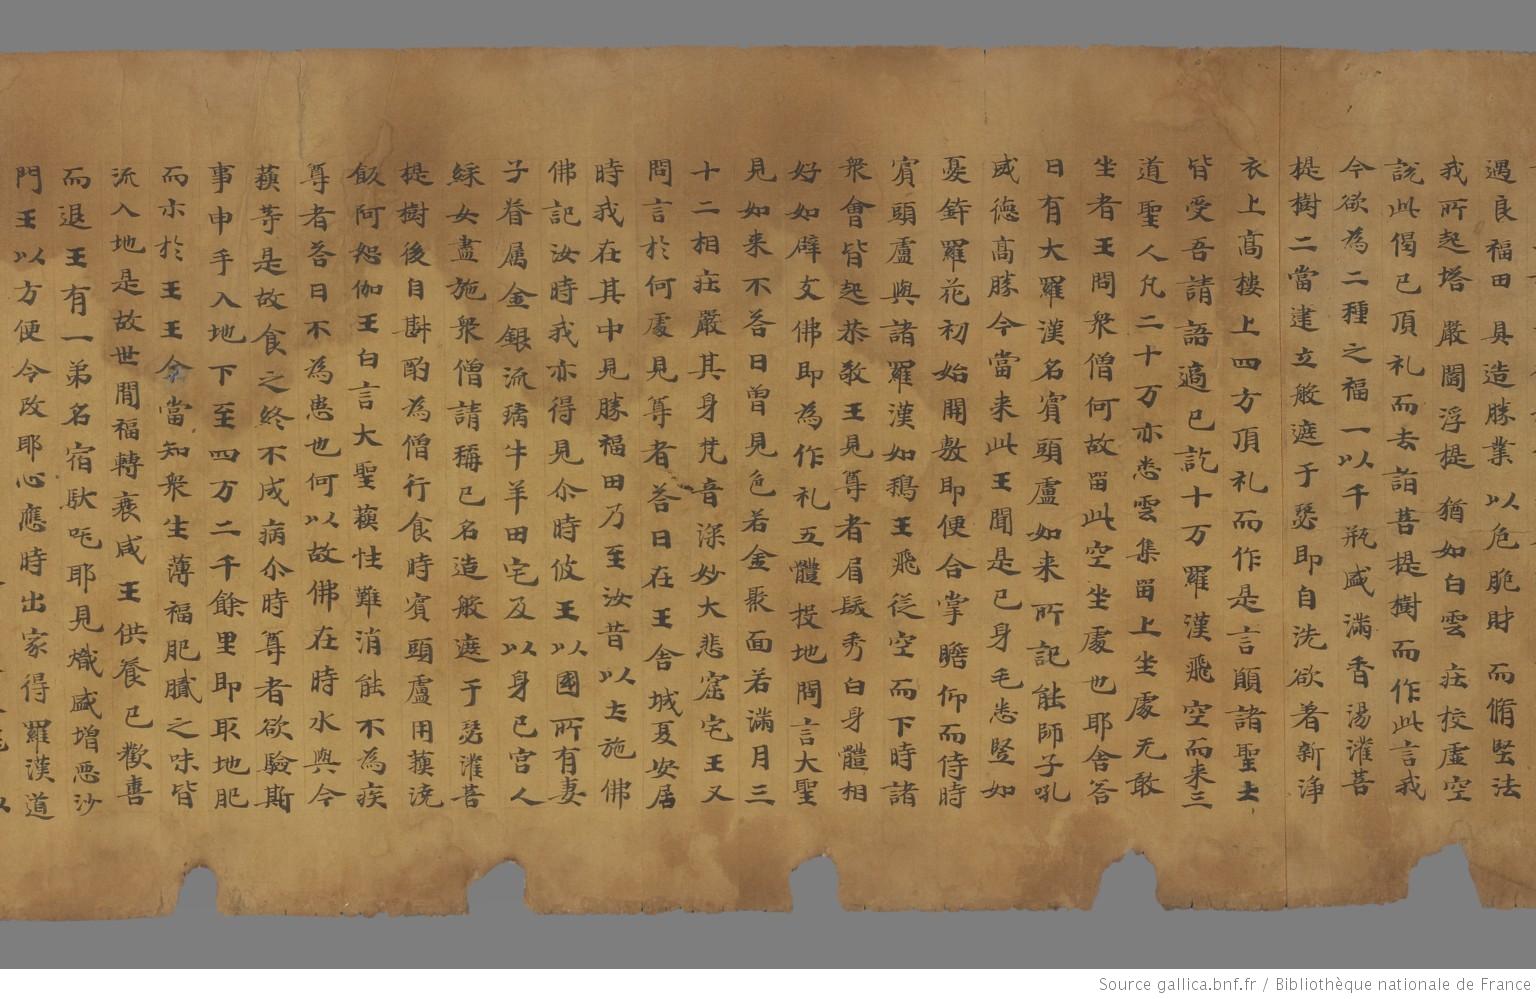 遇良福田 具造勝業 以危脆財 而脩堅法
我所起塔 嚴閻浮提 猶如白雲 莊挍虛空
說此偈已頂礼而去詣菩提樹而作此言我
今欲為二種之福一以千瓶盛滿香湯灌菩
提樹二當建立般遮于瑟即自洗欲著新淨
衣上高樓上四方頂礼而作是言願諸聖士
皆受吾請語適已訖十万羅漢飛空而来三
道聖人凡二十万亦悉雲集留上坐處无敢
坐者王問衆僧何故留此空坐處也耶舍答
日有大羅漢名賓頭盧如来所記能師子吼
威德高勝今當来此王聞是已身毛悉竪如
憂鉢羅花初始開敷即便合掌瞻仰而侍時
賓頭盧與諸羅漢如鵝王飛從空而下時諸
衆會皆起恭敬王見尊者眉髮秀白身體相
好如辟支佛即為作礼五體投地問言大聖
見如来不答日曾見色若金聚面若滿月三
十二相莊嚴其身梵音深妙大悲窟宅王又
問言於何處見尊者答日在王舍城夏安居
時我在其中見勝福田乃至汝昔以土施佛
佛記汝時我亦得見尒時彼王以國所有妻
子眷属金銀流璃牛羊田宅及以身己宮人
綵女盡施衆僧請稱已名造般遮于瑟灌菩
提樹後自斟酌為僧行食時賓頭盧用蘓澆
飯阿恕伽王白言大聖蘓性難消能不為疾
尊者答日不為患也何以故佛在時水與今
蘓等是故食之終不成病尒時尊者欲驗斯
事申手入地下至四万二千餘里即取地肥
而示於王王今當知衆生薄福肥膩之味皆
流入地是故世間福轉衰减王供養已歡喜
而退王有一弟名宿馱吒耶見熾盛增惡沙
門王以方便令改耶心應時出家得羅漢道